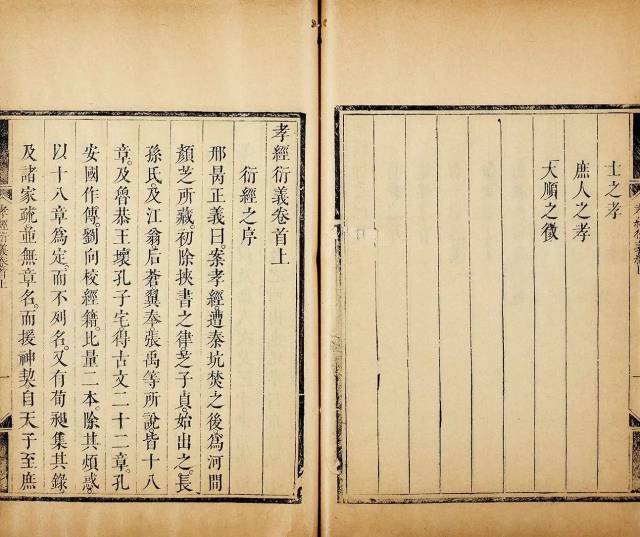 士之孝
庶人之孝
大順之徵
孝經衍義卷首上
衍經之序
邢昺正義曰。案孝經遭秦坑焚之後爲河間
顏芝所藏。初除挾書之律。芝子貞。始出之。長
孫氏。及江翁后蒼翼奉張禹等所說。皆十八
章。及魯恭王壞孔子宅得古文二十二章。孔
安國作傳。劉向校經籍。比量二本。除其煩惑。
以十八章爲定。而不列名。又有荀昶集其錄。
及諸家疏並無章名。而援神契。自天子至庶
孝經衍義卷首上
一